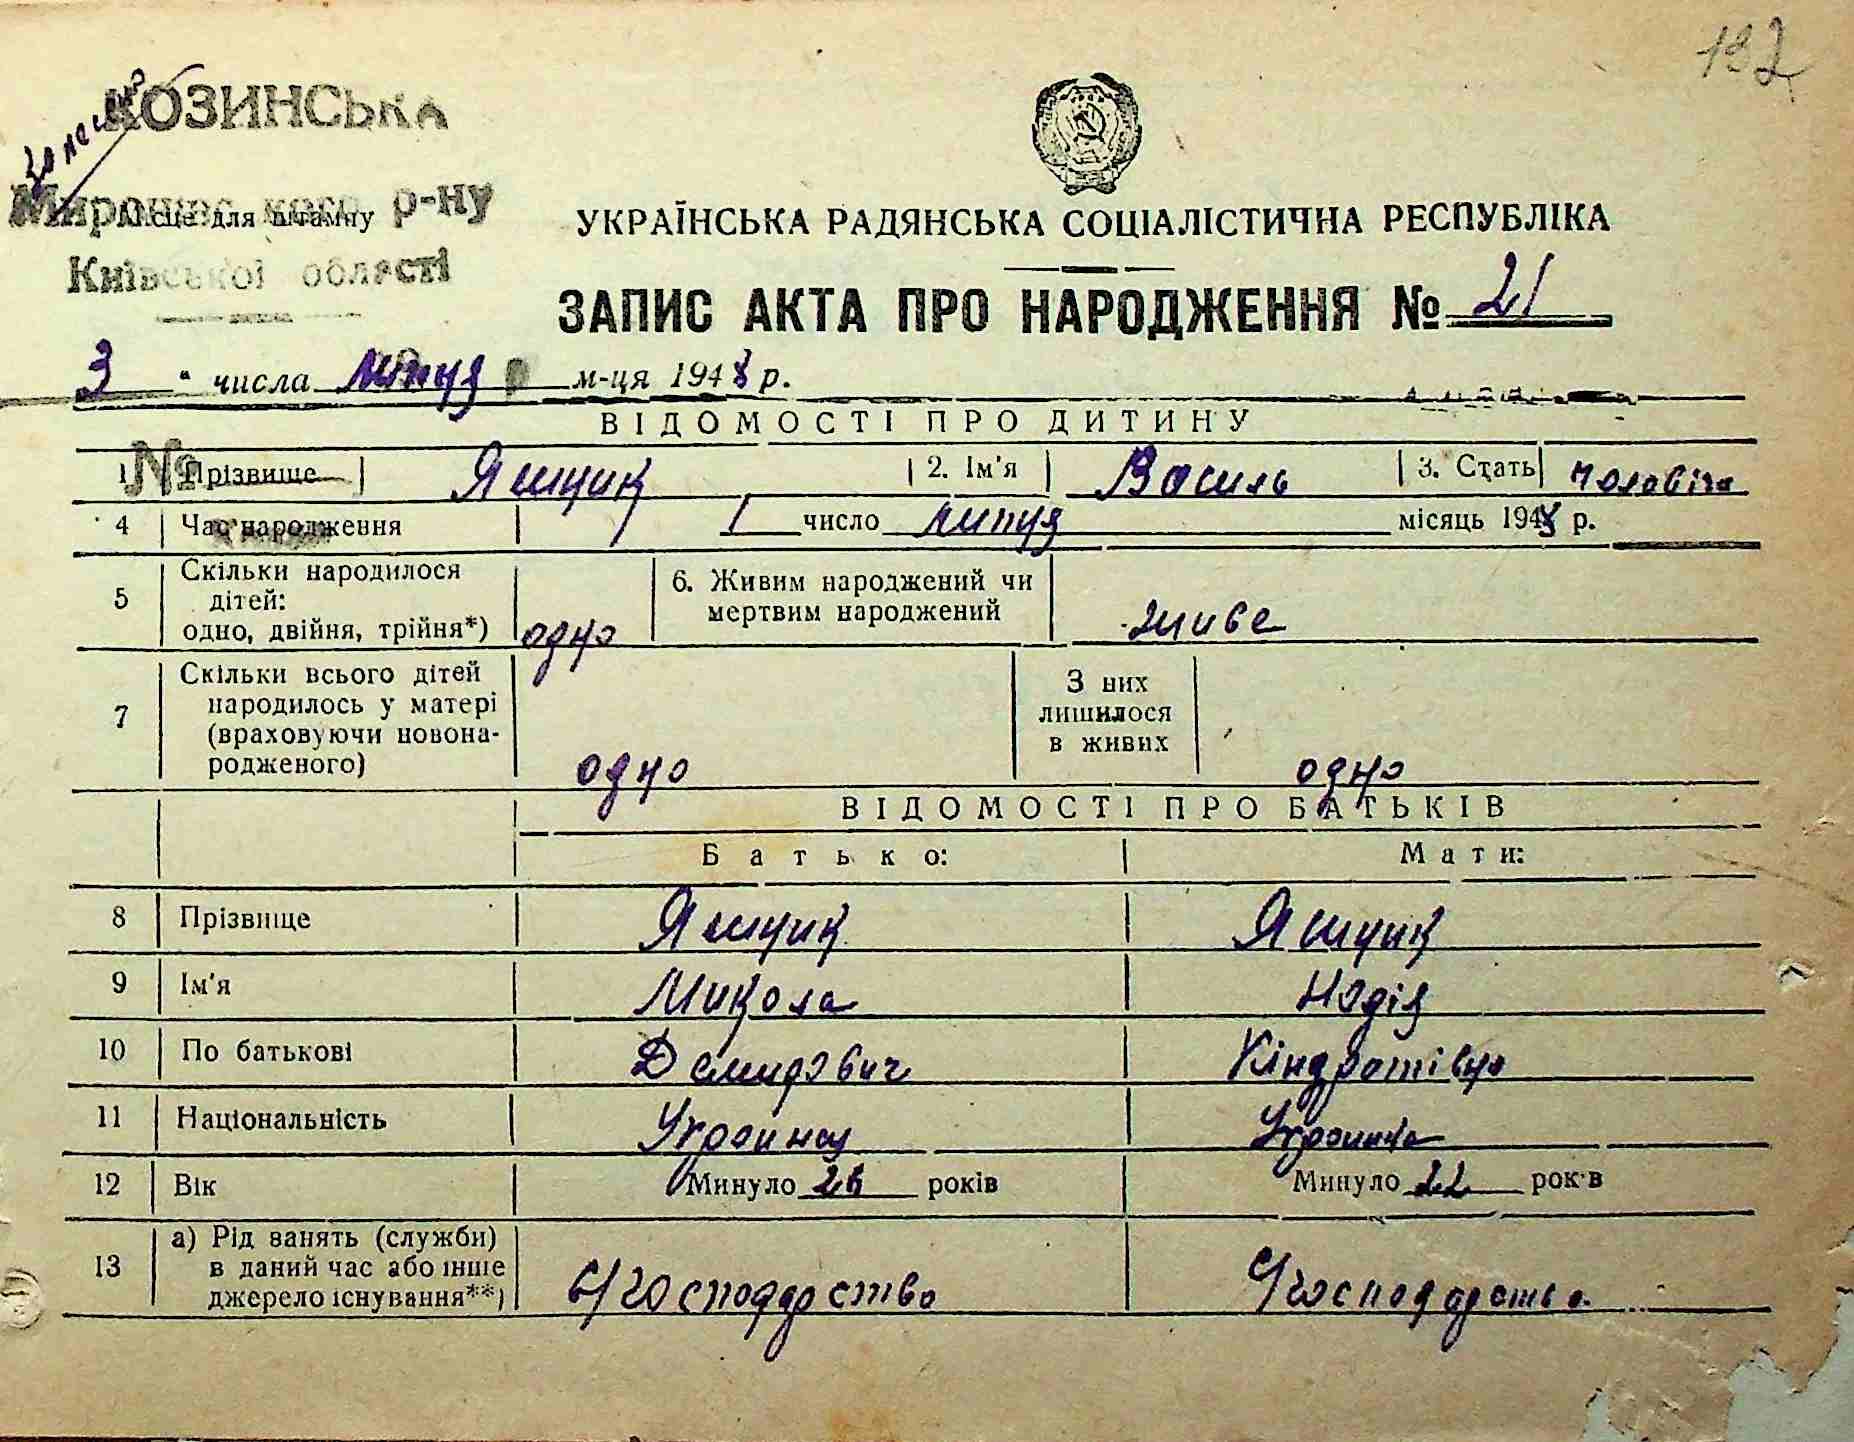 192
КОЗИНСЬКА
Миронівського р-ну
Місце для штампу
Київської області
УКРАЇНСЬКА РАДЯНСЬКА СОЦІАЛІСТИЧНА РЕСПУБЛІКА
ЗАПИС АКТА ПРО НАРОДЖЕННЯ № 21
3 " числа липня м-ця 1948 р.
ВІДОМОСТІ ПРО ДИТИНУ
№
1 Прізвище Ящик 2. Ім'я Василь 3. Стать чоловіча
4 Час народження 1 число липня місяць 1948 р.
5 Скільки народилося дітей: одно, двійня, трійня*) одно 6. Живим народжений чи мертвим народжений живе
7 Скільки всього дітей народилось у матері (враховуючи новонародженого) одно З них лишилося в живих одно
ВІДОМОСТІ ПРО БАТЬКІВ
Батько: Мати:
8 Прізвище Ящик Ящик
9 Ім'я Микола Надія
10 По батькові Демидович Кіндратівна
11 Національність Украинец Украинка
12 Вік Минуло років Минуло 22 рок в
13 а) Рід занять (служби) в даний час або інше джерело існування**) с/господарство с/господарство